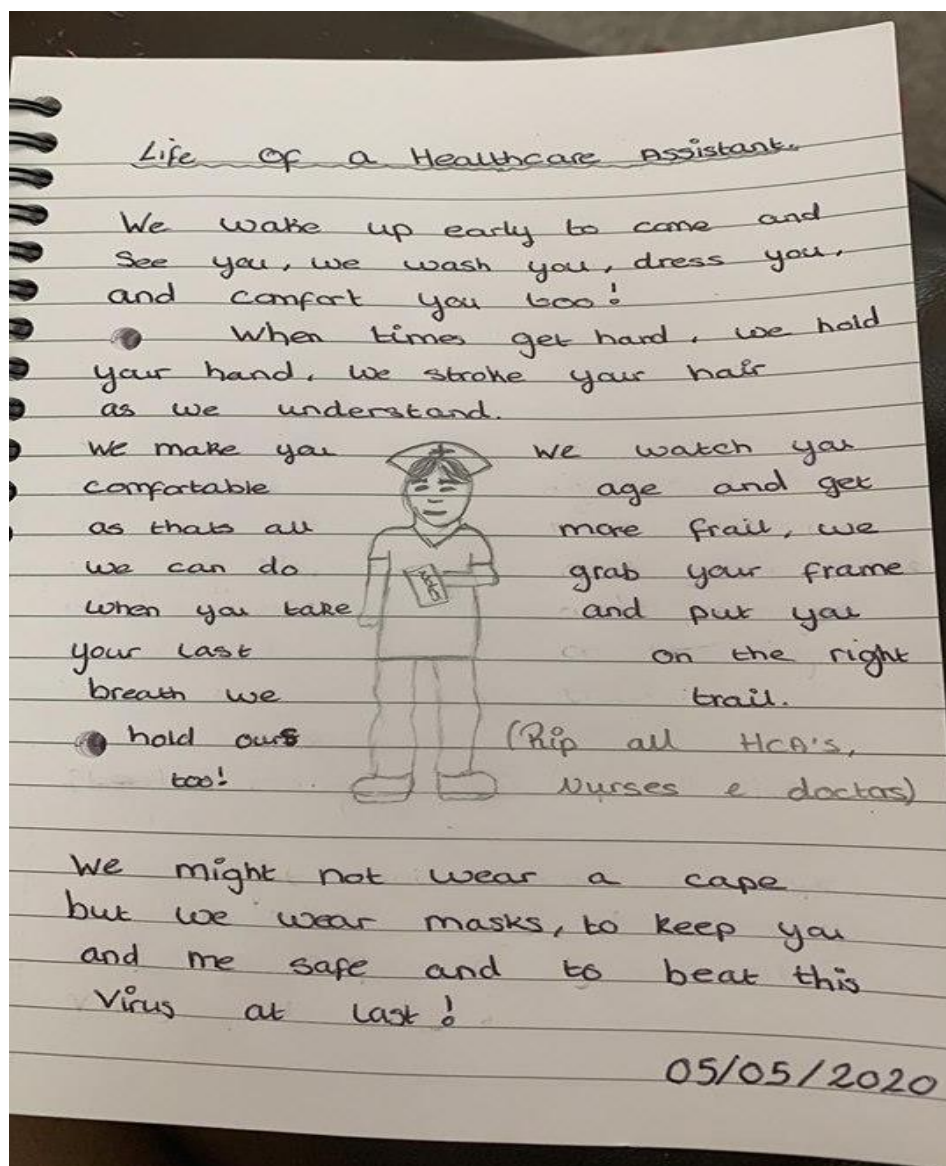 Life of a Healthcare Assistant.
We wake up early to come and
See you, we wash you, dress you,
and comfort you too!
When times get hard, we hold
your hand, we stroke your hair
as we understand.
We make you
comfortable
as thats all
we can do
when you take
your last
breath we
hold ours
too!
We watch you
age and get
more frail, we
grab your frame
and put you
on the right
trail.
(Rip all HCA's,
Nurses & doctors)
We might not wear a cape
but we wear masks, to keep you
and me safe and to beat this
Virus at last!
05/05/2020